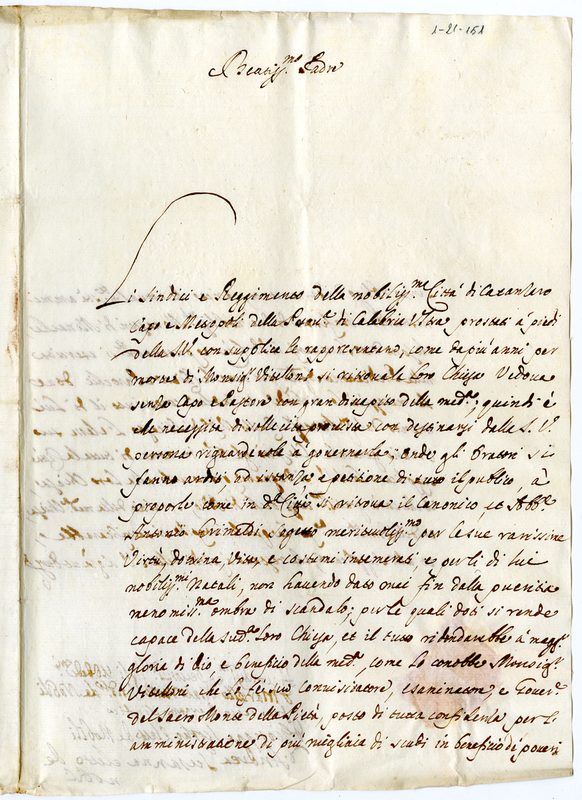 1-21-151
Beatiss.mo Padre
Li Sindici e Reggimento della nobiliss.ma Città di Catanzaro
Capo e Metropoli della Prou.a di Calabria Ultra prostati a' piedi
della S.V. con supplica le rappresentano, come da più anni per
morte di Monsig.r Visconti si ritroua le loro Chiesa Vedova
senza Capo e Pastore con gran discapito della med.a; quindi è
che necessità di sollecita prouista con destinarsi dalla S.V.
persona riguardeuole à gouernarla; onde gli Oratori si
fanno arditi ad istanza e petitione di tutto il publico, à
proporle come in d.a Città si ritroua il Canonico, et Abb.e
Antonio Grimaldi soggetto meriteuoliss.mo per le sue rarissime
Virtù, dottrina, Vita, e costumi integerrimi e per li di lui
nobiliss.mi Natali, non hauendo dato mai fin dalla pueritia
menomiss.ma ombra di scandalo; per le quali doti si rende
capace della sud.a loro Chiesa, et il tutto ridondarebbe à magg.r
gloria di Dio e beneficio della med.a, come lo conobbe Monsig.r
che lo fe' suo conuisitatore, esaminatore, e Gouer.re
del Sacro Monte della Pietà, posto di tutta confidenza per l'
amministratione di più migliaia di scudi in beneficio di poueri